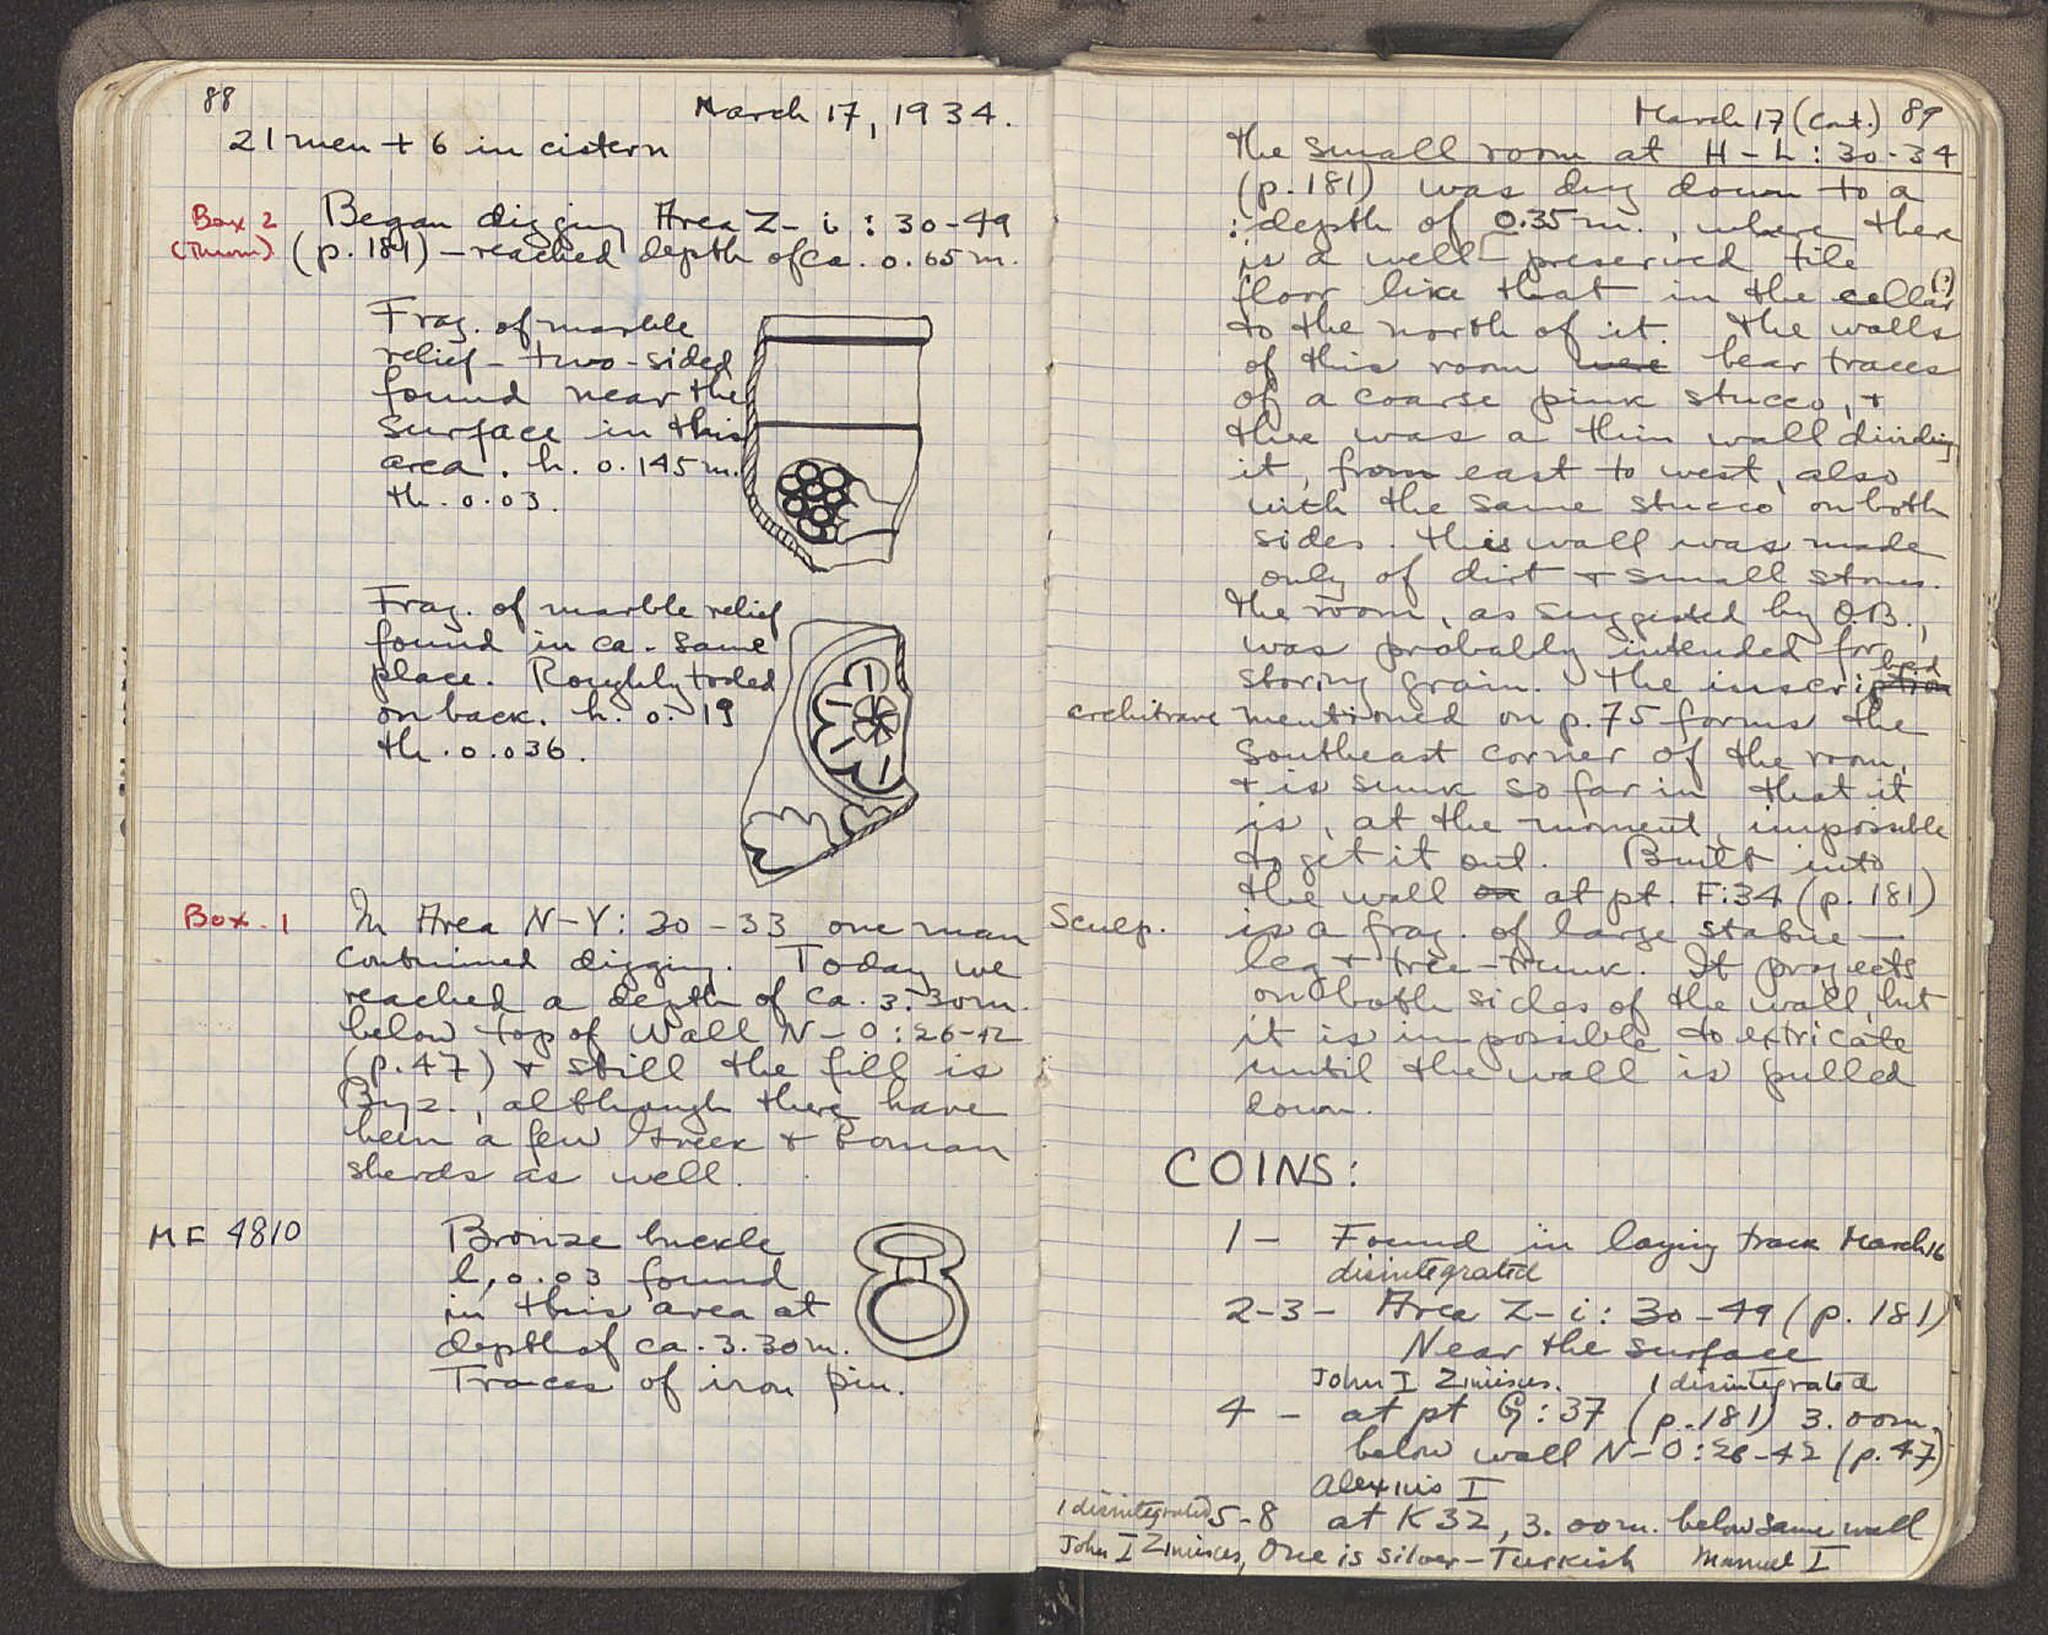 88
March 17, 1934.
21 men + 6 in cistern
Box 2 Began digging Area Z-i : 30-49
(Thurs) (p. 181) – reached depth of ca. 0.65 m.
Frag. of marble
relief – two-sided
found near the
surface in this
area. h. 0.145 m.
th. 0.03.
Frag. of marble relief
found in ca. same
place. Roughly tooled
on back. h. 0.19
th. 0.036.
Box 1 In Area N-Y: 30-33 one man
continued digging. Today we
reached a depth of ca. 3.30 m.
below top of Wall N-O: 26-42
(p. 47) + still the fill is
Byz., although there have
been a few Greek + Roman
sherds as well.
MF 4810 Bronze buckle
l, 0.03 found
in this area at
depth of ca. 3.30 m.
Traces of iron pin.
March 17 (Cont.) 89
The small room at H-L: 30-34
(p. 181) was dug down to a
depth of 0.35 m., where there
is a well-preserved tile
floor like that in the cellar (?)
to the north of it. The walls
of this room were bear traces
of a coarse pink stucco, +
there was a thin wall dividing
it, from east to west, also
with the same stucco on both
sides. This wall was made
only of dirt + small stones.
The room, as suggested by O.B.,
was probably intended for
storing grain. The inscribed
architrave mentioned on p. 75 forms the
southeast corner of the room,
+ is sunk so far in that it
is, at the moment, impossible
to get it out. Built into
the wall on at pt. F:34 (p. 181)
Sculp. is a frag. of large statue –
leg + tree-trunk. It projects
on both sides of the wall, but
it is impossible to extricate
until the wall is pulled
down.
COINS:
1 – Found in laying track March 16
disintegrated
2-3 – Area Z-i: 30-49 (p. 181)
Near the surface
John I Zimisces. 1 disintegrated
4 – at pt G:37 (p. 181) 3.00 m.
below wall N-O: 26-42 (p. 47)
Alexius I
1 disintegrated 5-8 at K32, 3.00 m. below same wall
John I Zimisces, One is silver – Turkish Manuel I